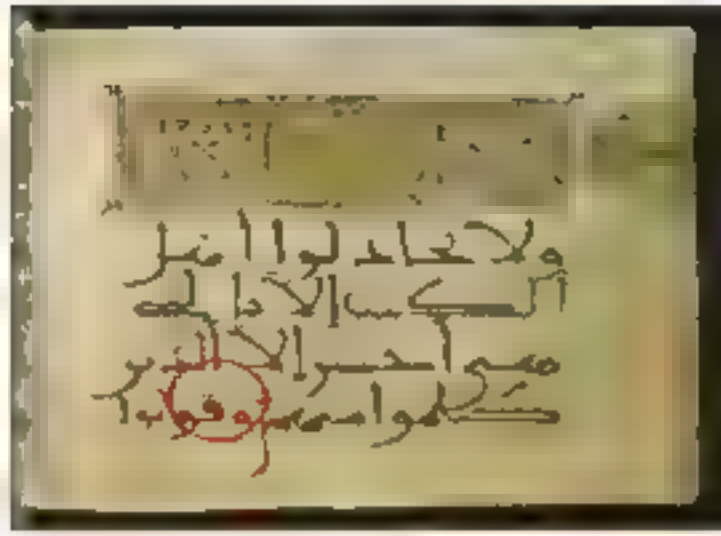 ولا تجادلوا اهل
الكتاب الا بالتى
هى احسن الا الذين
ظلموا منهم وقولوا